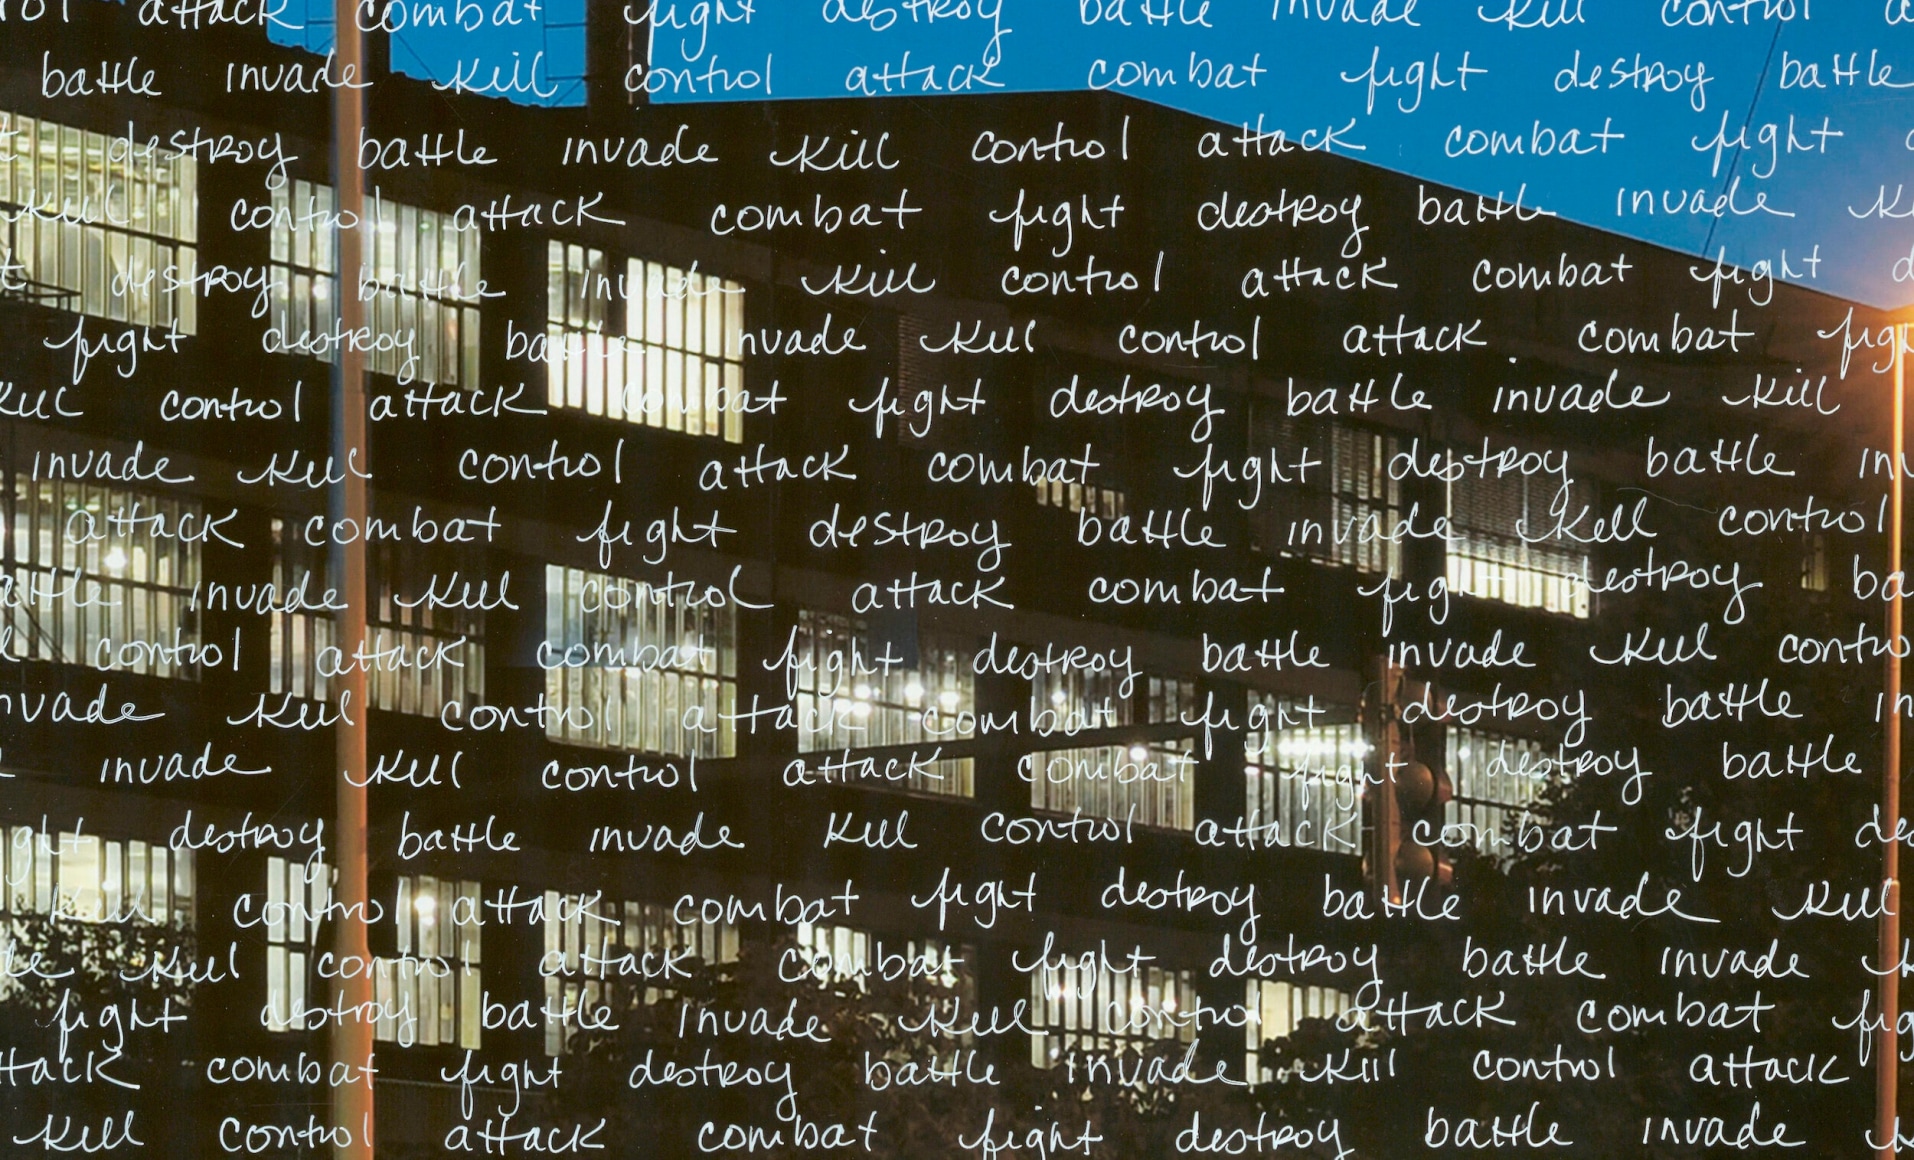 attack combat fight destroy battle invade kill control
battle invade kill control attack combat fight destroy battle
destroy battle invade kill control attack combat fight
kill control attack combat fight destroy battle invade
destroy battle invade kill control attack combat fight
fight destroy battle nvade kill control attack combat
kill control attack combat fight destroy battle invade kill
invade kill control attack combat fight destroy battle
attack combat fight destroy battle invade kill control
invade kill control attack combat fight destroy
control attack combat fight destroy battle invade kill
nvade kill control attack combat fight destroy battle
invade kill control attack combat fight destroy battle
destroy battle invade kill control attack combat fight
kill control attack combat fight destroy battle invade kill
kill control attack combat fight destroy battle invade
fight destroy battle invade kill control attack combat
combat fight destroy battle invade kill control attack
kill control attack combat fight destroy battle invade